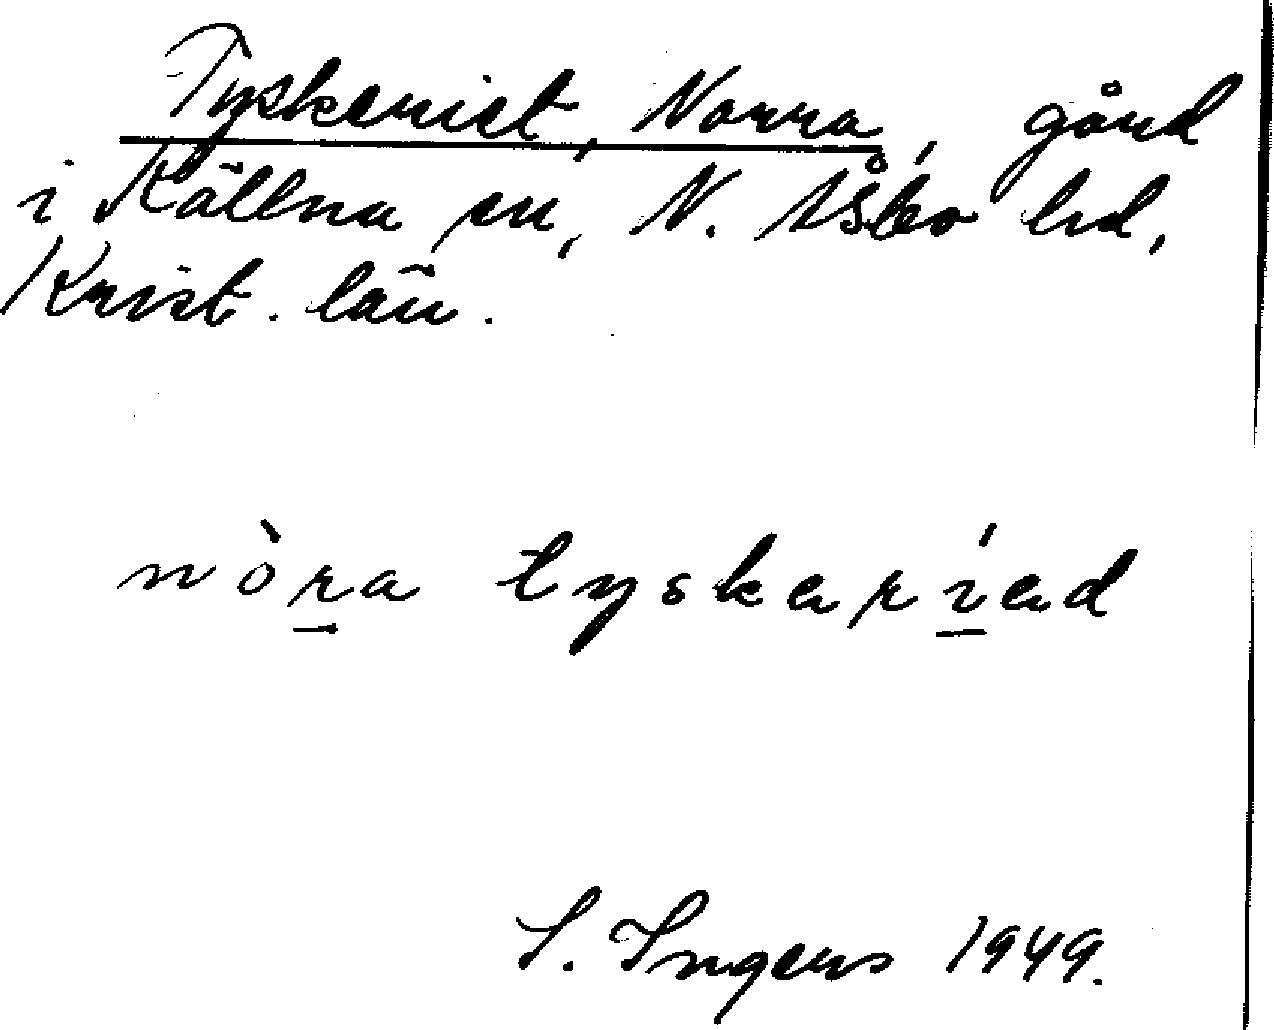 Tyskeriet, Norra, gård
i Källna sn, N. Åsbo hd,
Krist. län.
nòra tyskaríad
S. Ingers 1949.